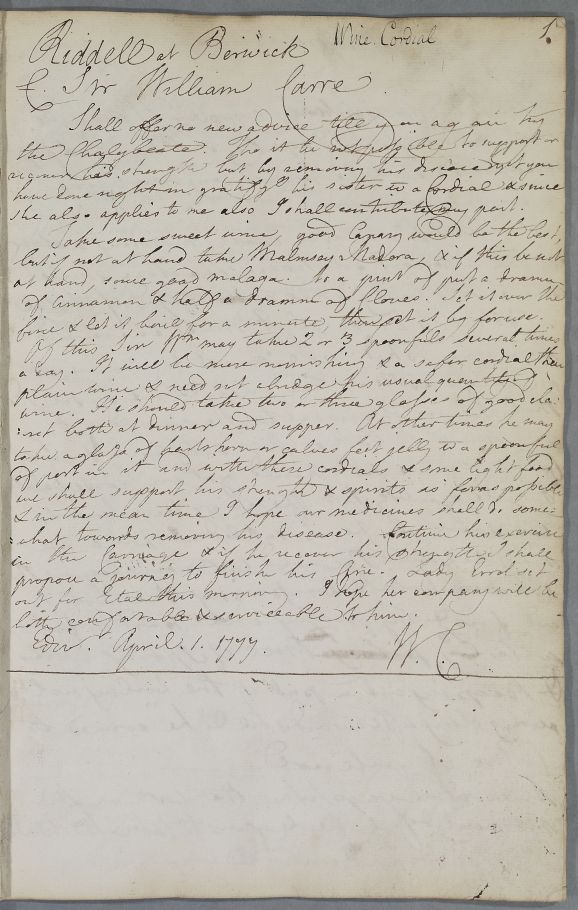 Wine Cordial 1.
Riddell at Berwick
C. Sir William Carre
Shall offer no new advice till you again try
the Chalybeate. Tho it be not possible to support or
recover his strength but by removing his disease yet you
have done right in gratifyg his sister in a Cordial & since
she also applies to me also I shall contribute my part.
Take some sweet wine, good Canary would be the best,
but if not at hand take Malmsey Madeira, & if this be not
at hand, some good malaga. To a pint of put a dram
of Cinnamon & half a dramm of Cloves. Set it over the
fire & let it boil for a minute, then set it by for use.
Of this Sir Wm may take 2 or 3 spoonfuls several times
a day. It will be more nourishing & a safer cordial than
plain wine & need not abridge his usual quantity of
wine. He should take two or three glasses of good cla:
:ret both at dinner and supper. At other times he may
take a glass of hartshorn or calves feet gelly wt a spoonful
of port in it and with these cordials & some light food
we shall support his strength & spirits as far as possible
& in the mean time I hope our medicines shall do some:
:what towards removing his disease. Continue his exercise
in the Carriage & if he recover his strength I shall
propose a journey to finish his Cure. Lady Errol set
out for Etal this morning. I hope her company will be
both comfortable & serviceable to him.
Edinr. April. 1. 1777. W. C.